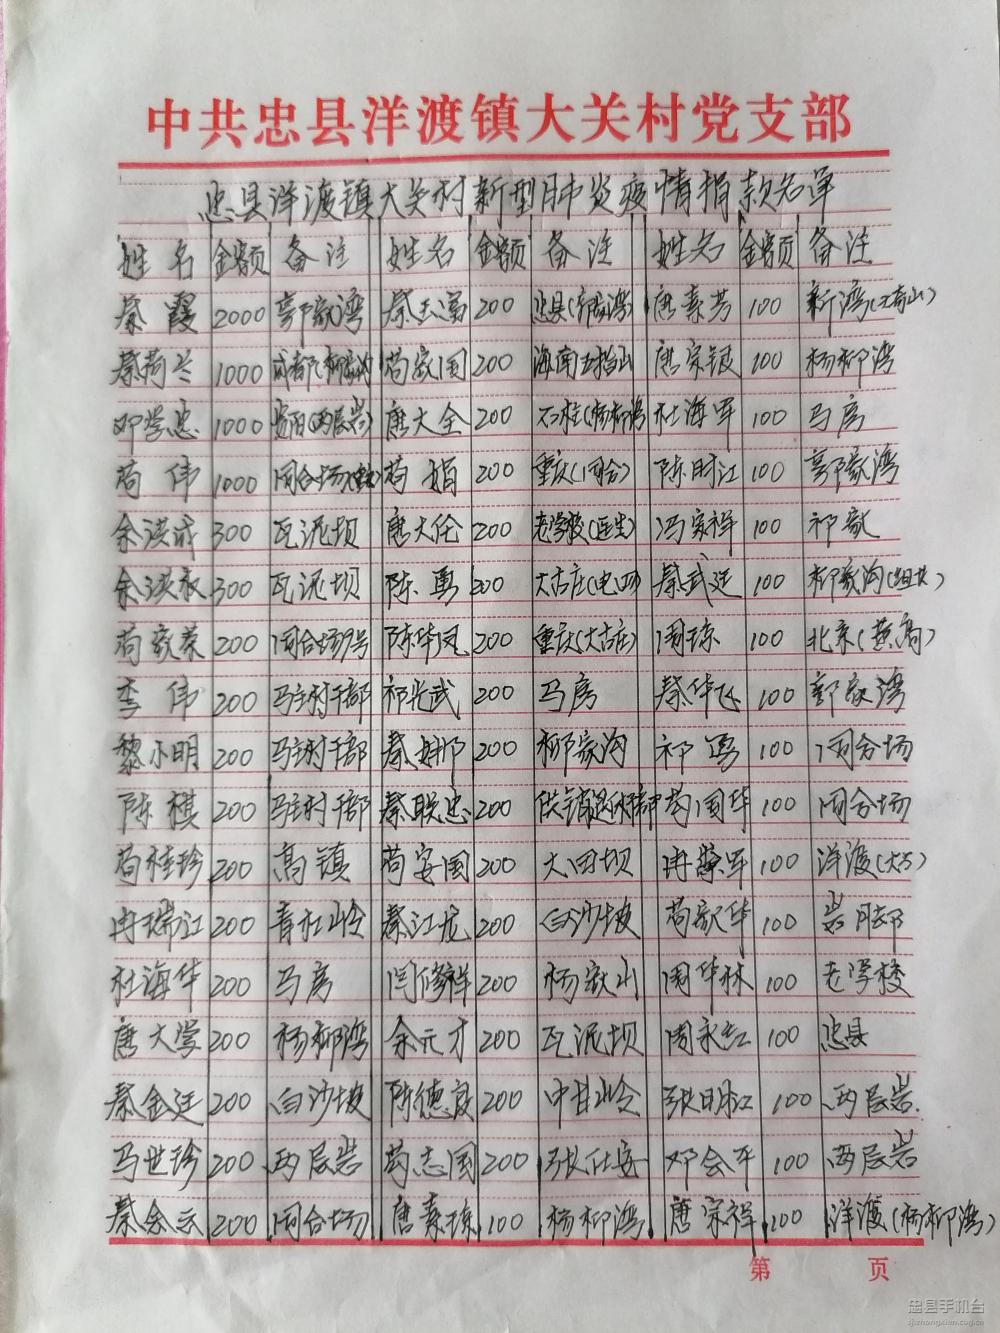 中共忠县洋渡镇大关村党支部
忠县洋渡镇大关村新型肺炎疫情捐款名单
姓名 金额 备注 姓名 金额 备注 姓名 金额 备注
秦霞 2000 郭家湾 秦玉富 200 忠县(郭家湾) 唐素芳 100 新湾(石音山)
秦荷兰 1000 成都(柳家沟) 苟家国 200 海南五指山 唐宗银 100 杨柳湾
邓学忠 1000 贵阳(两层岩) 唐大全 200 石柱(杨柳湾 杜海军 100 马房
苟伟 1000 周合场 苟娟 200 重庆(周合) 陈时江 100 郭家湾
余洪成 300 瓦泥坝 唐大伦 200 老学校(医生) 冯家祥 100 祁家
余洪永 300 瓦泥坝 陈勇 200 大古庄(电四) 秦武廷 100 柳家沟
苟家荣 200 周合场9号 陈华凤 200 重庆(大古庄) 周琼 100 北京(黄角)
李伟 200 马主村干部 祁光武 200 马房 秦华飞 100 郭家湾
黎小明 200 马主村干部 秦娜 200 柳家沟 祁勇 100 周合场
陈棋 200 马主村干部 秦联忠 200 供销退休 苟国华 100 周合场
苟桂珍 200 高镇 苟安国 200 大田坝 冉崇军 100 洋渡(大古)
冉瑞江 200 青杠岭 秦江龙 200 白沙坡 苟家华 100
杜海华 200 马房 闫修祥 200 杨家山 周华林 100 老学校
唐大学 200 杨柳湾 余元才 200 瓦泥坝 周永红 100 忠县
秦金廷 200 白沙坡 陈德良 200 中井岭 张明江 100 两层岩
马世珍 200 两层岩 苟志国 200 张仕安 邓会平 100 两层岩
秦余云 200 周合场 唐素琼 100 杨柳湾 唐宗祥 100 洋渡(杨柳湾)
第 页
忠县手机台